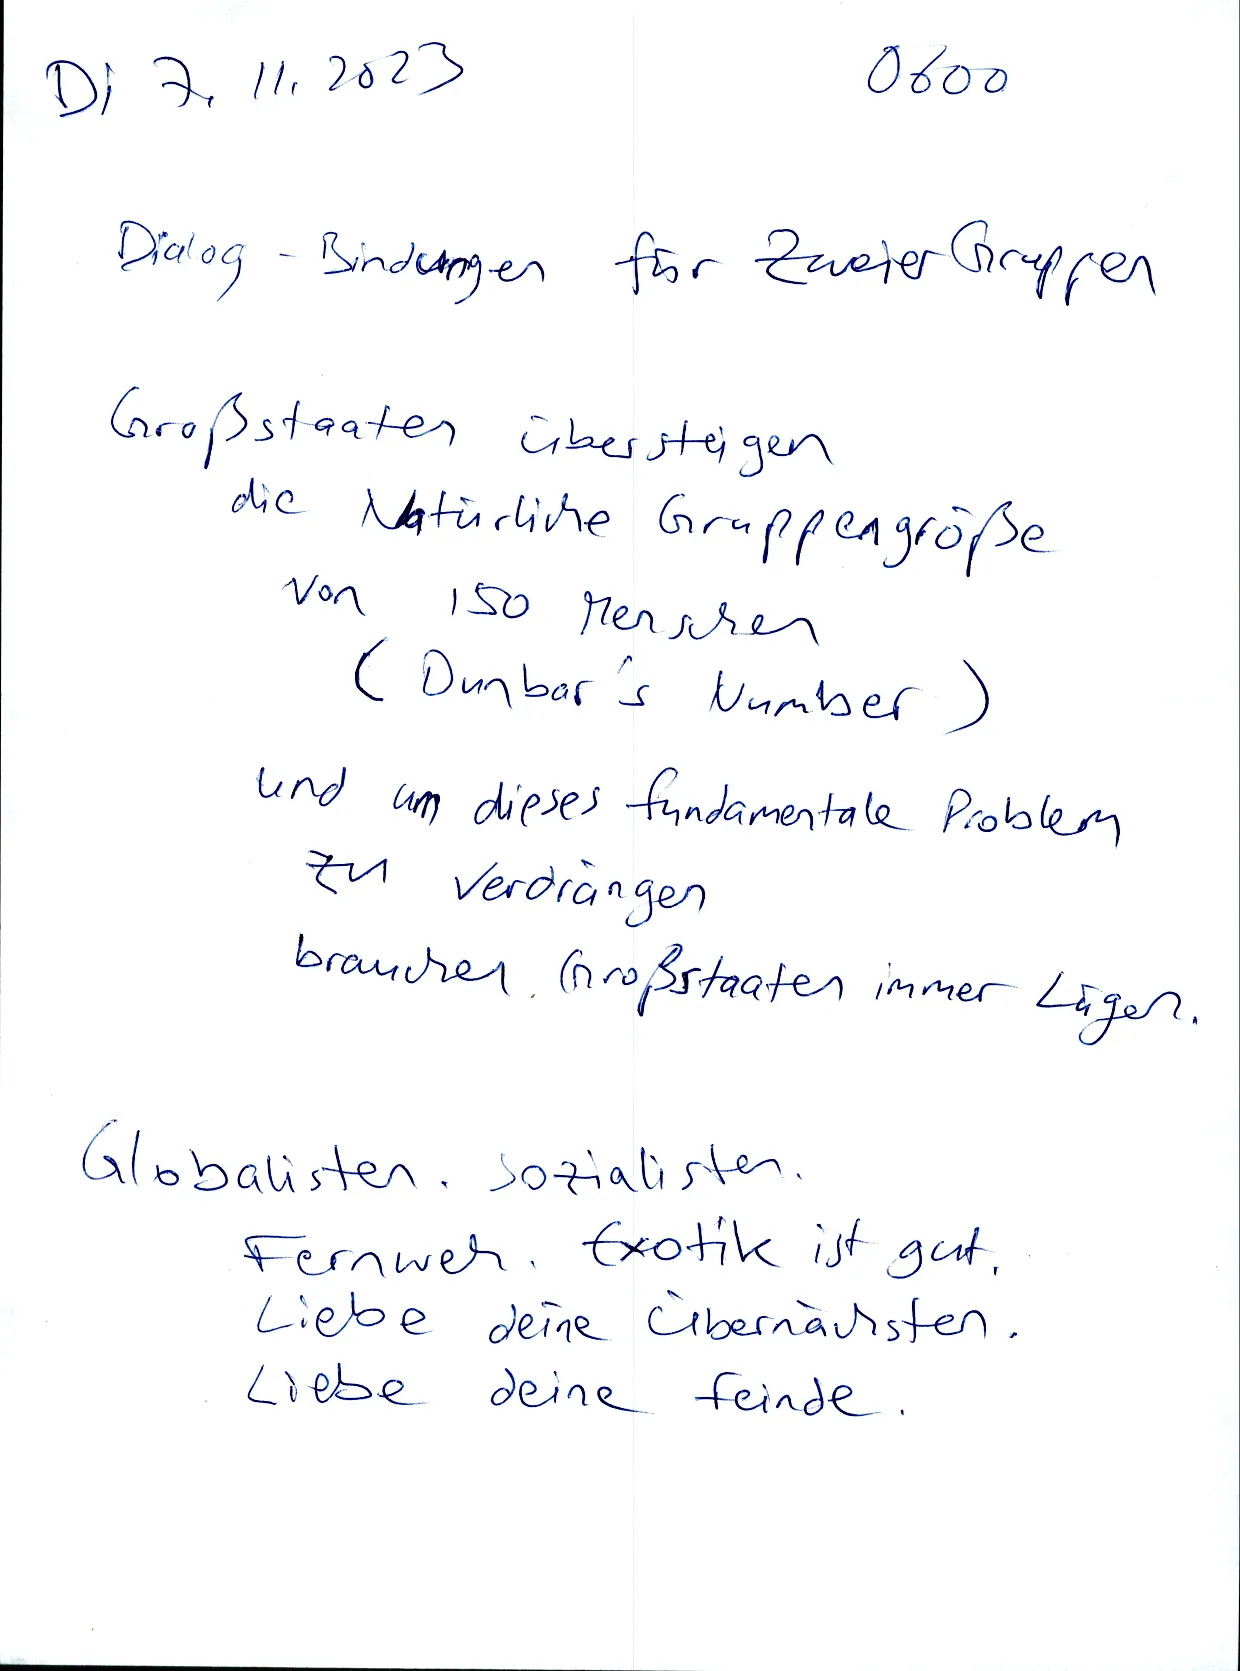 Di 7. 11. 2023 0600
Dialog-Bindungen für Zweier Gruppen
Großstaaten übersteigen
die Natürliche Gruppengröße
von 150 Menschen
(Dunbar's Number)
und um dieses fundamentale Problem
zu verdrängen
brauchen Großstaaten immer Lügen.
Globalisten. Sozialisten.
Fernweh. Exotik ist gut.
Liebe deine Übernächsten.
Liebe deine Feinde.